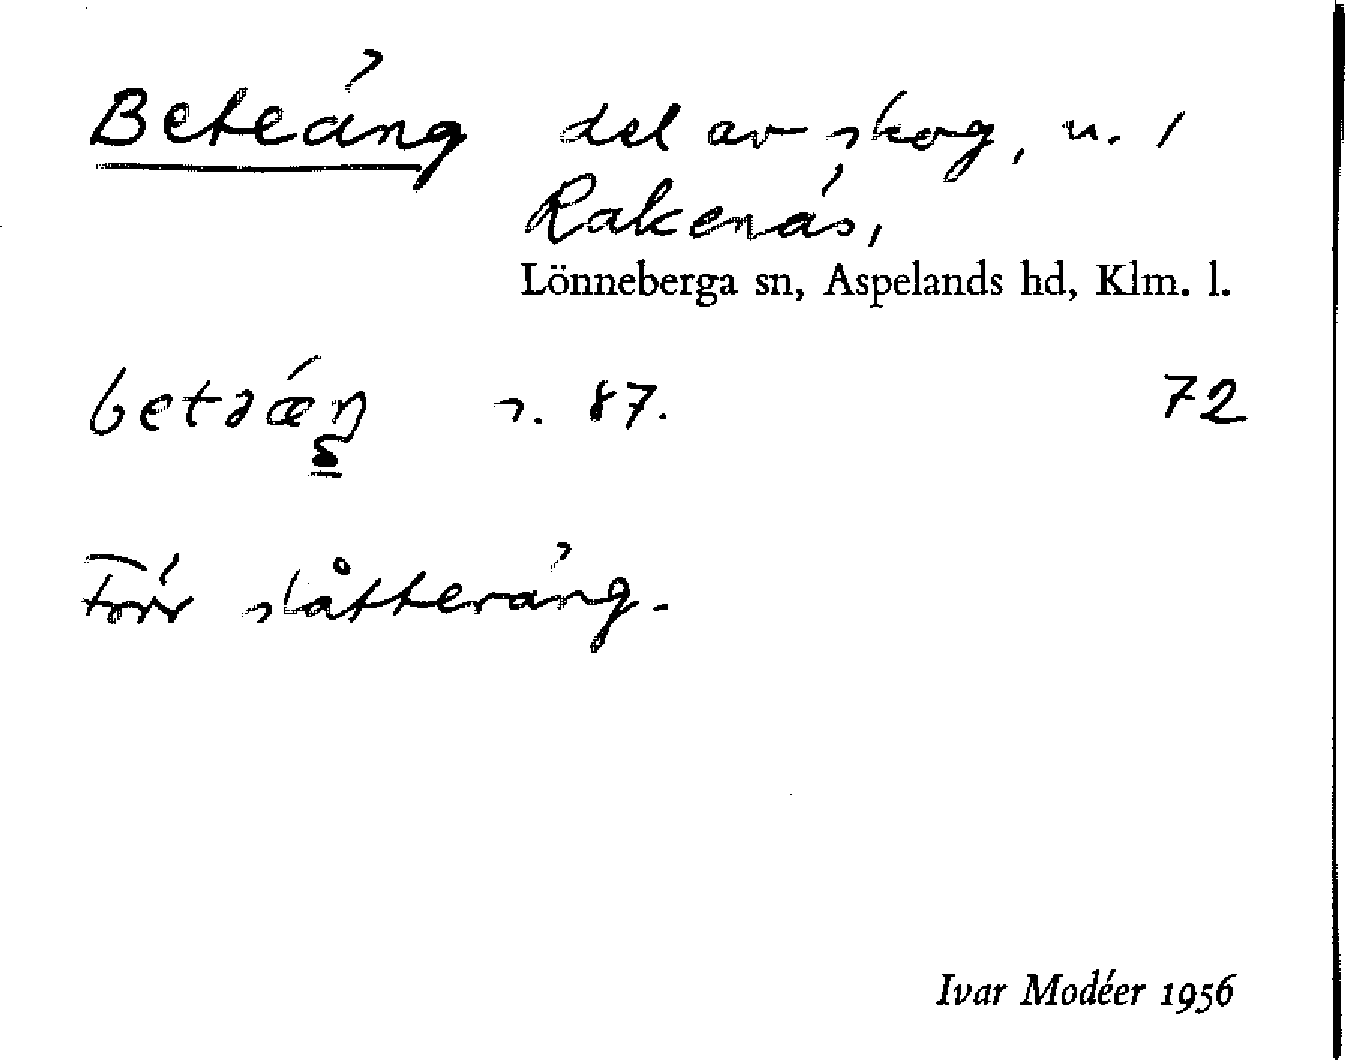 Beteäng del av skog, u. 1
Rakenäs,
Lönneberga sn, Aspelands hd, Klm. l.
s. 87. 72
Förr slåtteräng.
Ivar Modéer 1956